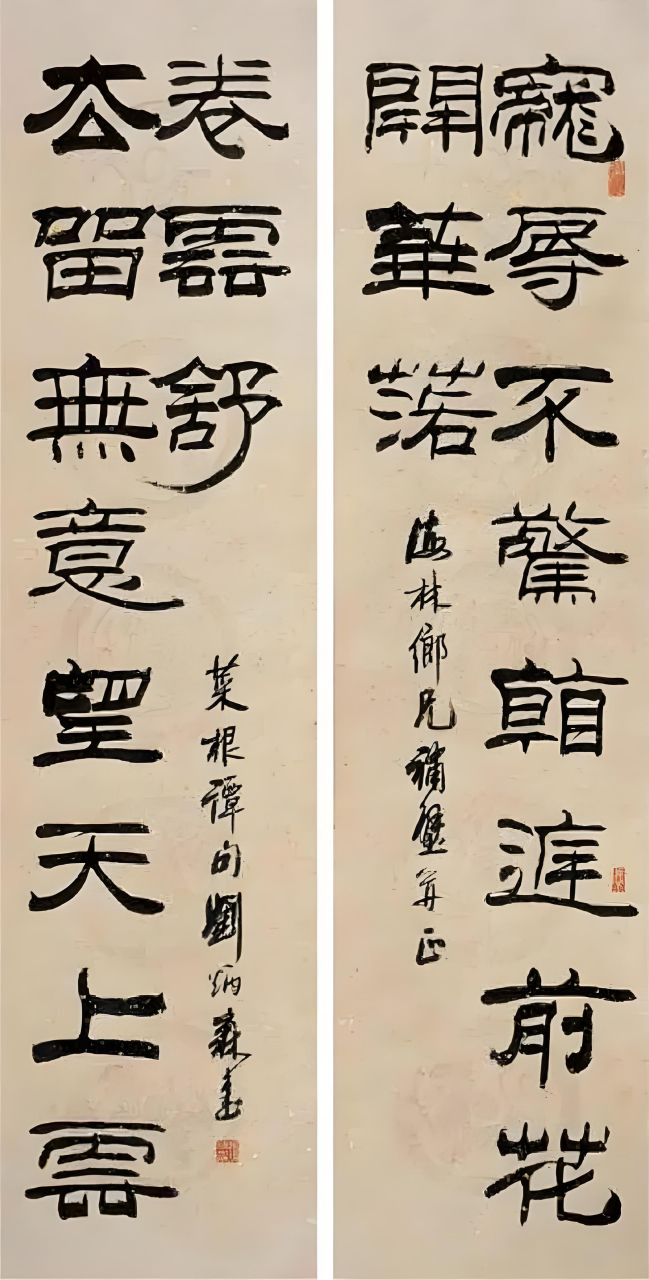 寵辱不驚看庭前花
開華落
海林鄉兄補壁并正
去留無意望天上雲
卷雲舒
菜根譚句劉炳森書